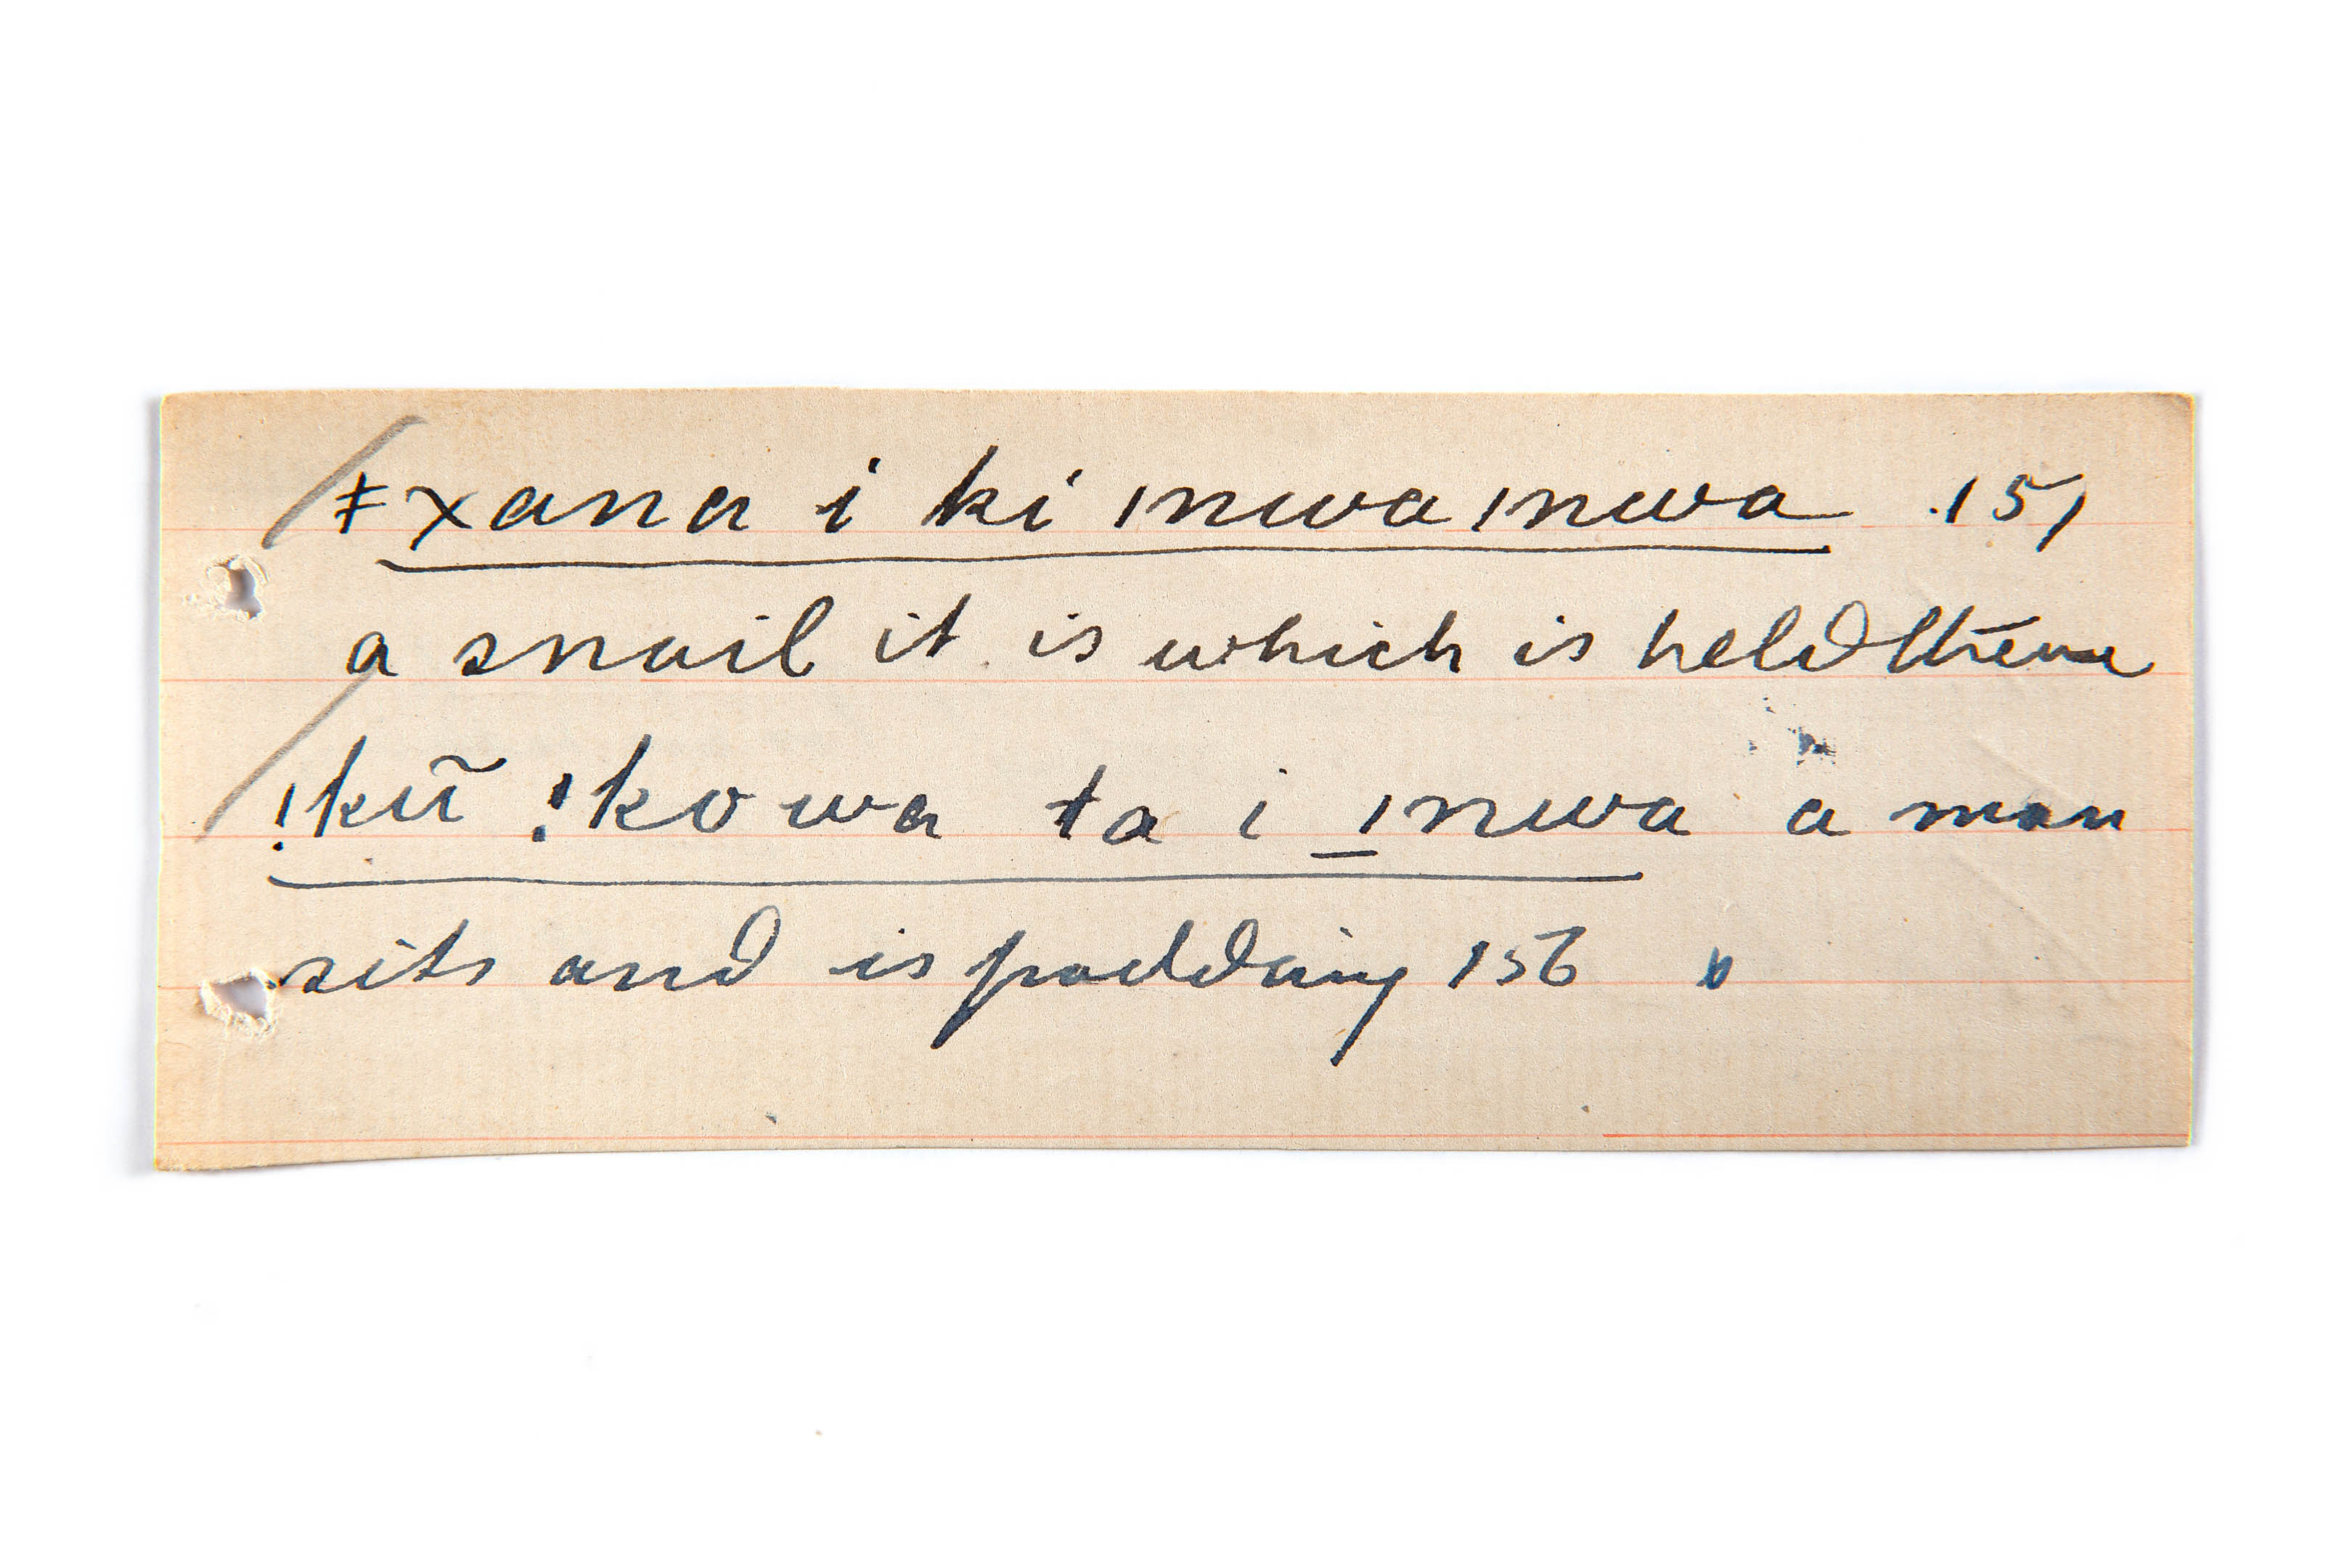 ǂxana i ki ǀnwaǀnwa .151
a snail it is which is held there
!kũ !kowa ta i ǀnwa a man
sits and is padding 156